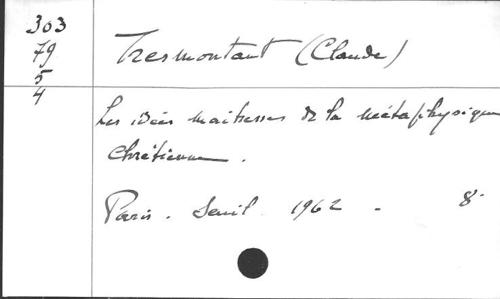 303
79
5
4
Tresmontant (Claude)
Les idées maitresses de la métaphysique
Chrétienne.
Paris. Seuil. 1962 - 8°